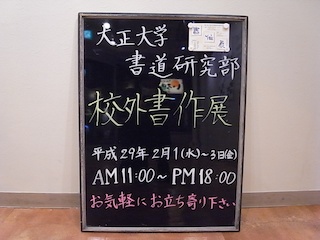 大正大学
書道研究部
校外書作展
平成29年2月1(水)~3日(金)
AM11:00~PM18:00
お気軽にお立ち寄り下さい